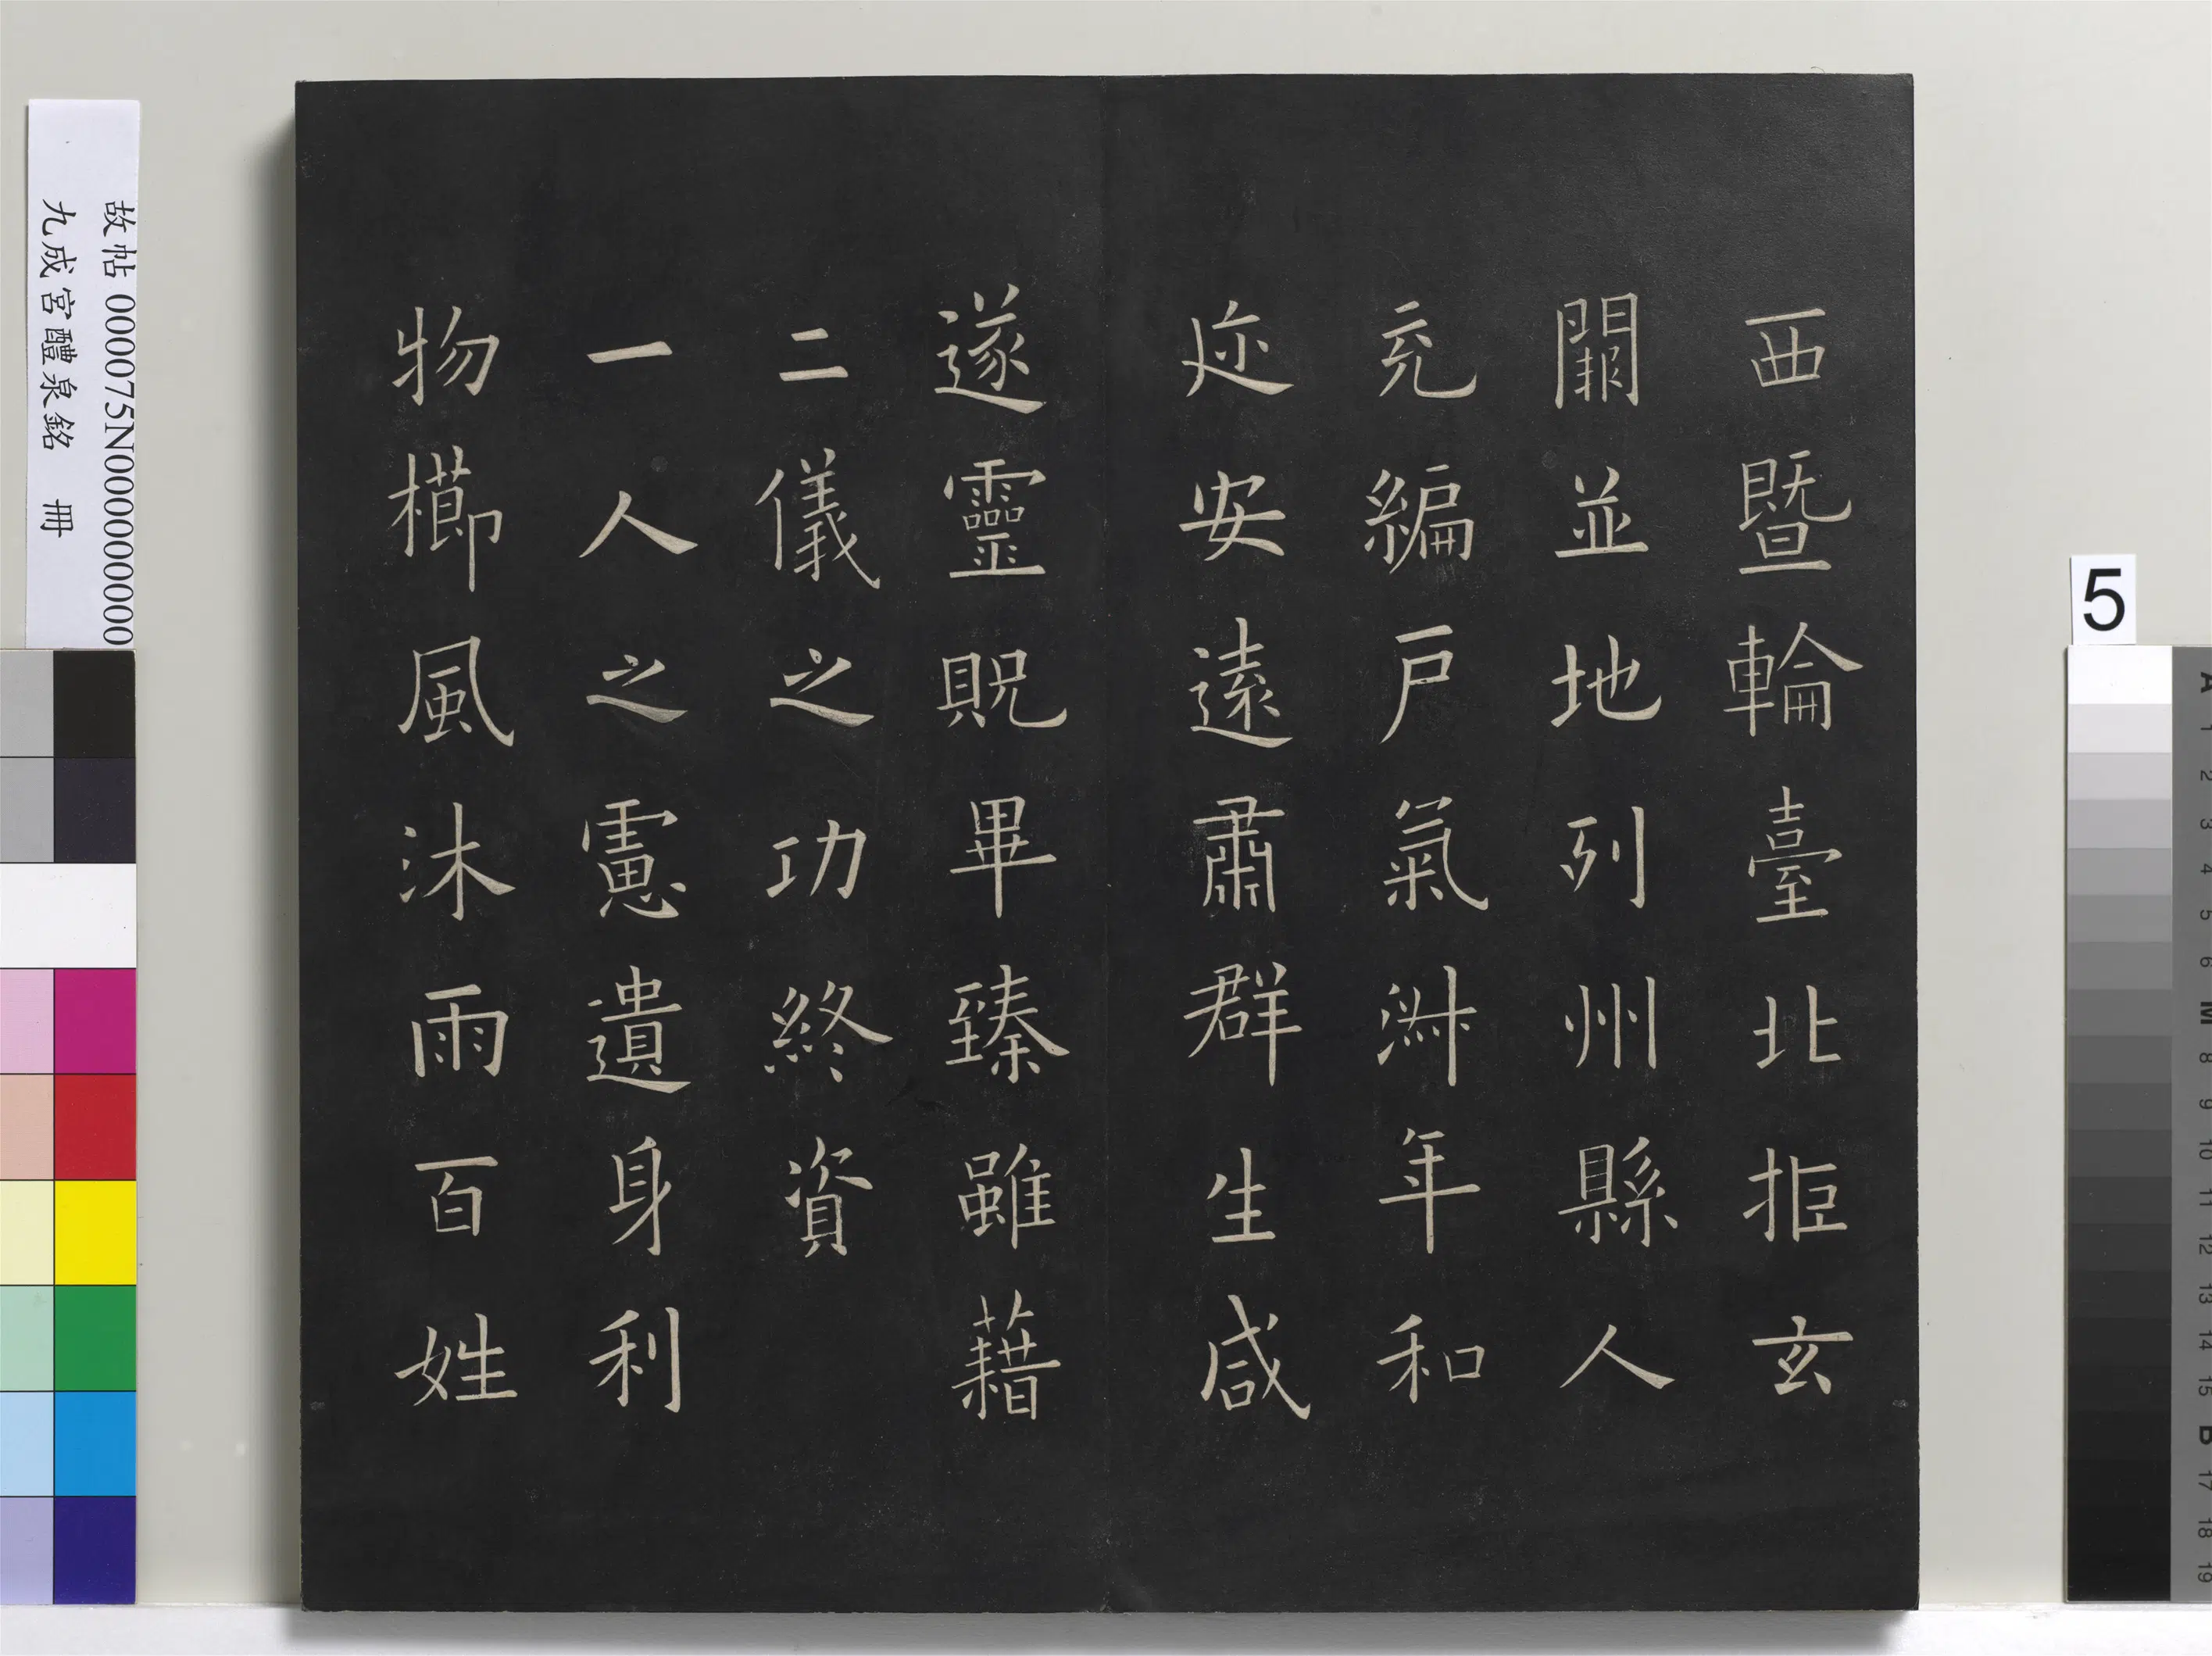 西暨輪臺北拒玄
闕並地列州縣人
充編戶氣淑年和
迩安遠肅群生咸
遂靈貺畢臻雖藉
二儀之功終資
一人之慮遺身利
物櫛風沐雨百姓
故帖 000075N000000000
九成宮醴泉銘 冊
5
A 1 2 3 4 5 6 M 8 9 10 11 12 13 14 15 B 17 18 19